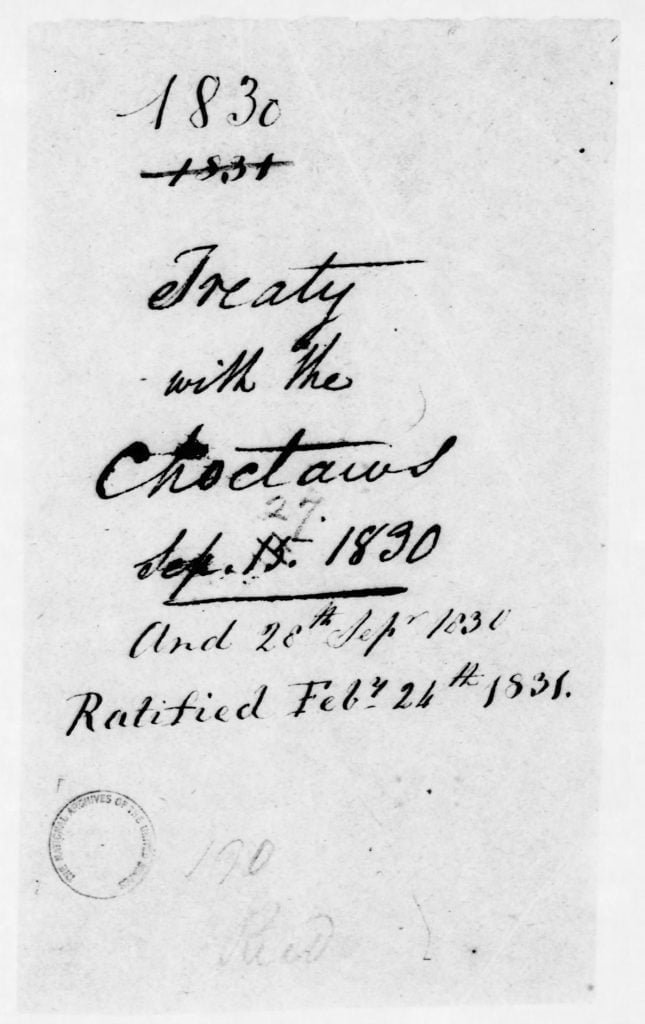 1830
1831
Treaty
with the
Choctaws
27
Sep. 15. 1830
And 28th Sepr 1830
Ratified Feby 24th 1831.
THE NATIONAL ARCHIVES OF THE UNITED STATES
190